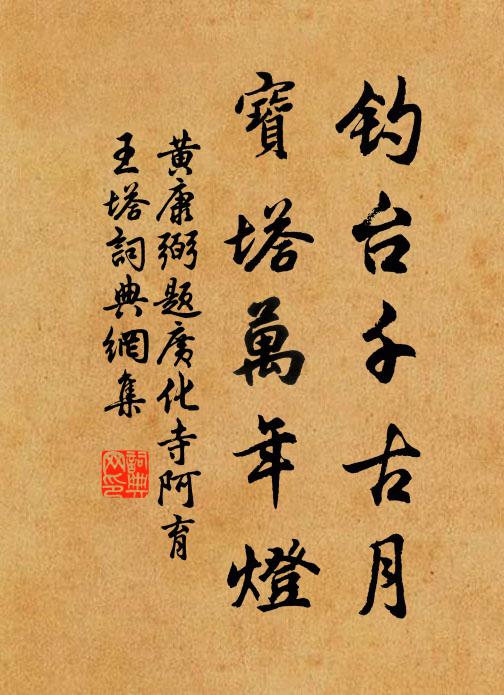 钓台千古月
寶塔萬年燈
黄康弼题廣化寺阿育
王塔詞典網集
詞典網印